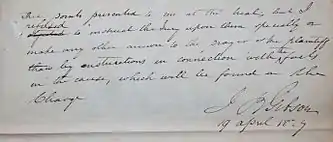 This, Points presented to me at the trial, but I
refused to instruct the Jury upon them specially or
make any other answer to the prayer of the plaintiff
than by instructions in connection with the facts
in the cause, which will be found in the
Charge
J B Gibson
19 April 18